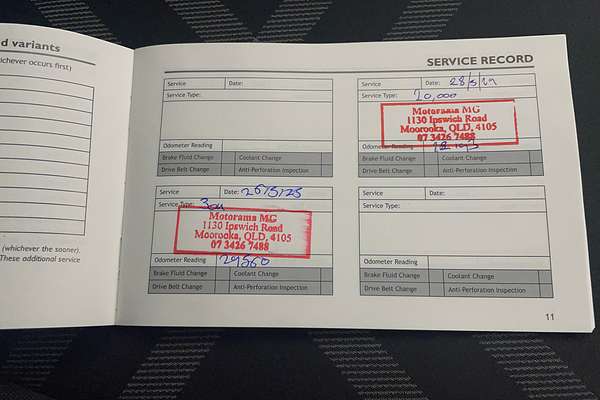 d variants
hichever occurs first)
(whichever the sooner).
These additional service
SERVICE RECORD
Service Date:
Service Type:
Odometer Reading
Brake Fluid Change Coolant Change
Drive Belt Change Anti-Perforation Inspection
Service Date:
Service Type: 20,000
Motorama MG
1130 Ipswich Road
Moorooka, QLD, 4105
07 3426 7488
Odometer Reading
Brake Fluid Change Coolant Change
Drive Belt Change Anti-Perforation Inspection
Service Date: 26/5/25
Service Type:
Motorama MG
1130 Ipswich Road
Moorooka, QLD, 4105
07 3426 7488
Odometer Reading 29560
Brake Fluid Change Coolant Change
Drive Belt Change Anti-Perforation Inspection
Service Date:
Service Type:
Odometer Reading
Brake Fluid Change Coolant Change
Drive Belt Change Anti-Perforation Inspection
11